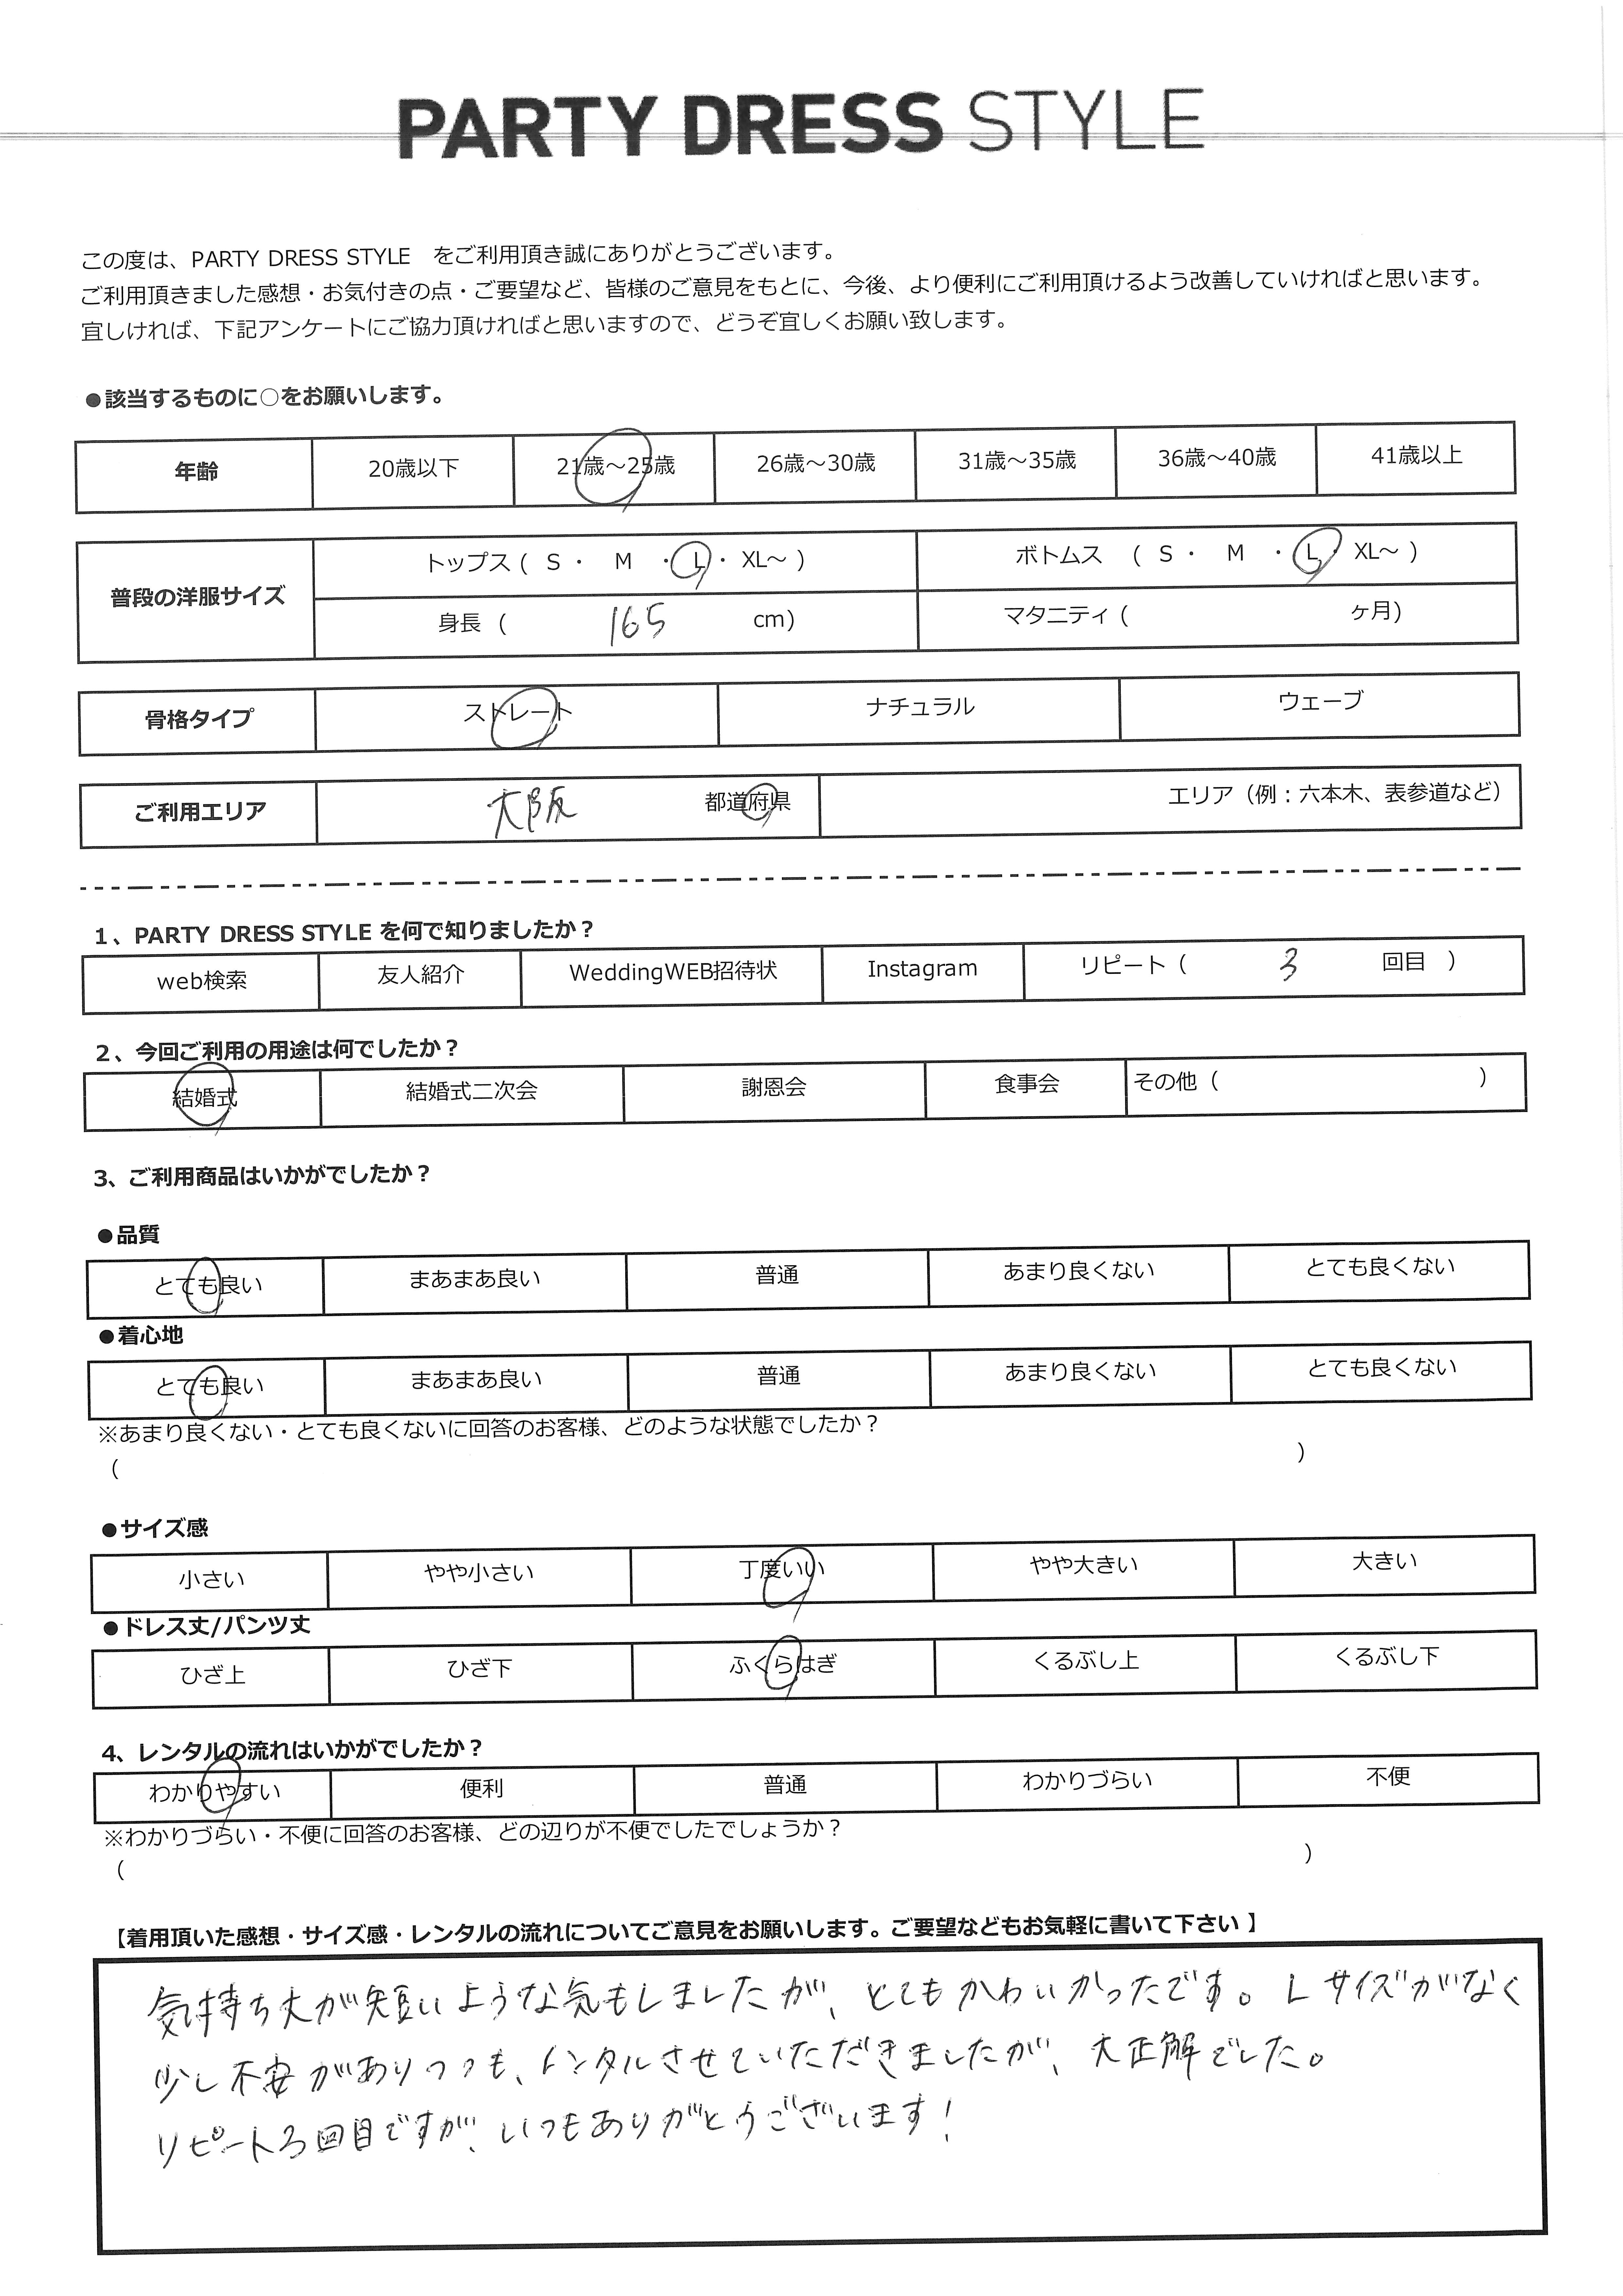 PARTY DRESS STYLE
この度は、PARTY DRESS STYLE　をご利用頂き誠にありがとうございます。
ご利用頂きました感想・お気付きの点・ご要望など、皆様のご意見をもとに、今後、より便利にご利用頂けるよう改善していければと思います。
宜しければ、下記アンケートにご協力頂ければと思いますので、どうぞ宜しくお願い致します。
●該当するものに○をお願いします。
年齢 20歳以下 21歳～25歳 26歳～30歳 31歳～35歳 36歳～40歳 41歳以上
普段の洋服サイズ
トップス ( S ・ M ・ L ・ XL～ ) ボトムス ( S ・ M ・ L ・ XL～ )
身長 ( 165 cm) マタニティ ( ヶ月)
骨格タイプ ストレート ナチュラル ウェーブ
ご利用エリア 大阪 都道府県 エリア（例：六本木、表参道など）
1、PARTY DRESS STYLE を何で知りましたか？
web検索 友人紹介 WeddingWEB招待状 Instagram リピート（ 3 回目 ）
2、今回ご利用の用途は何でしたか？
結婚式 結婚式二次会 謝恩会 食事会 その他（ ）
3、ご利用商品はいかがでしたか？
●品質
とても良い まあまあ良い 普通 あまり良くない とても良くない
●着心地
とても良い まあまあ良い 普通 あまり良くない とても良くない
※あまり良くない・とても良くないに回答のお客様、どのような状態でしたか？
( )
●サイズ感
小さい やや小さい 丁度いい やや大きい 大きい
●ドレス丈/パンツ丈
ひざ上 ひざ下 ふくらはぎ くるぶし上 くるぶし下
4、レンタルの流れはいかがでしたか？
わかりやすい 便利 普通 わかりづらい 不便
※わかりづらい・不便に回答のお客様、どの辺りが不便でしたでしょうか？
( )
【着用頂いた感想・サイズ感・レンタルの流れについてご意見をお願いします。ご要望などもお気軽に書いて下さい 】
気持ち丈が短いような気もしましたが、とてもかわいかったです。Lサイズがなく
少し不安がありつつも、レンタルさせていただきましたが、大正解でした。
リピート3回目ですが、いつもありがとうございます!